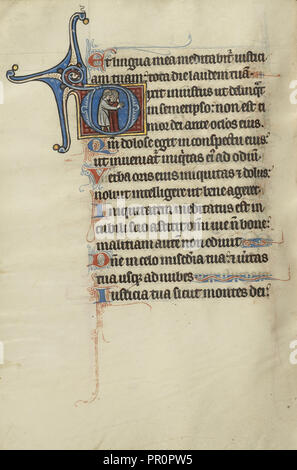 Et lingua mea meditabit' iustici
am tuam: tota die laudem tuā.
Dixit iniustus ut delinq̄t
in semetipso: non est ti
mor dei ante oculos eius.
Qm̄ dolose egit in conspectu eius:
ut inveniat' iniquitas ei' ad odiū
Verba oris eius iniquitas ⁊ dolus:
noluit intelligere ut bene ageret.
Iniquitatē meditatus est in
cubili suo astitit omni vie nō bone:
malitiam autē non odivit.
Dn̄e in celo mīa tua: ⁊ veritas
tua usq; ad nubes.
Iusticia tua sicut montes dei:
alamy
PR0PW5